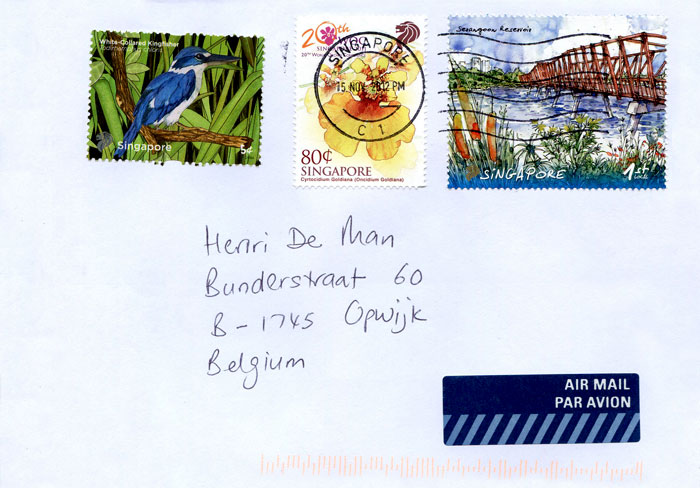 White-Collared Kingfisher
Todirhamphus chloris
Singapore
5¢
20th
80¢
SINGAPORE
Cyrtocidium Goldiana (Oncidium Goldiana)
SINGAPORE
15 NOV 2012 PM
C 1
Serangoon Reservoir
SINGAPORE
1st
LOCAL
Henri De Man
Bunderstraat 60
B-1745 Opwijk
Belgium
AIR MAIL
PAR AVION